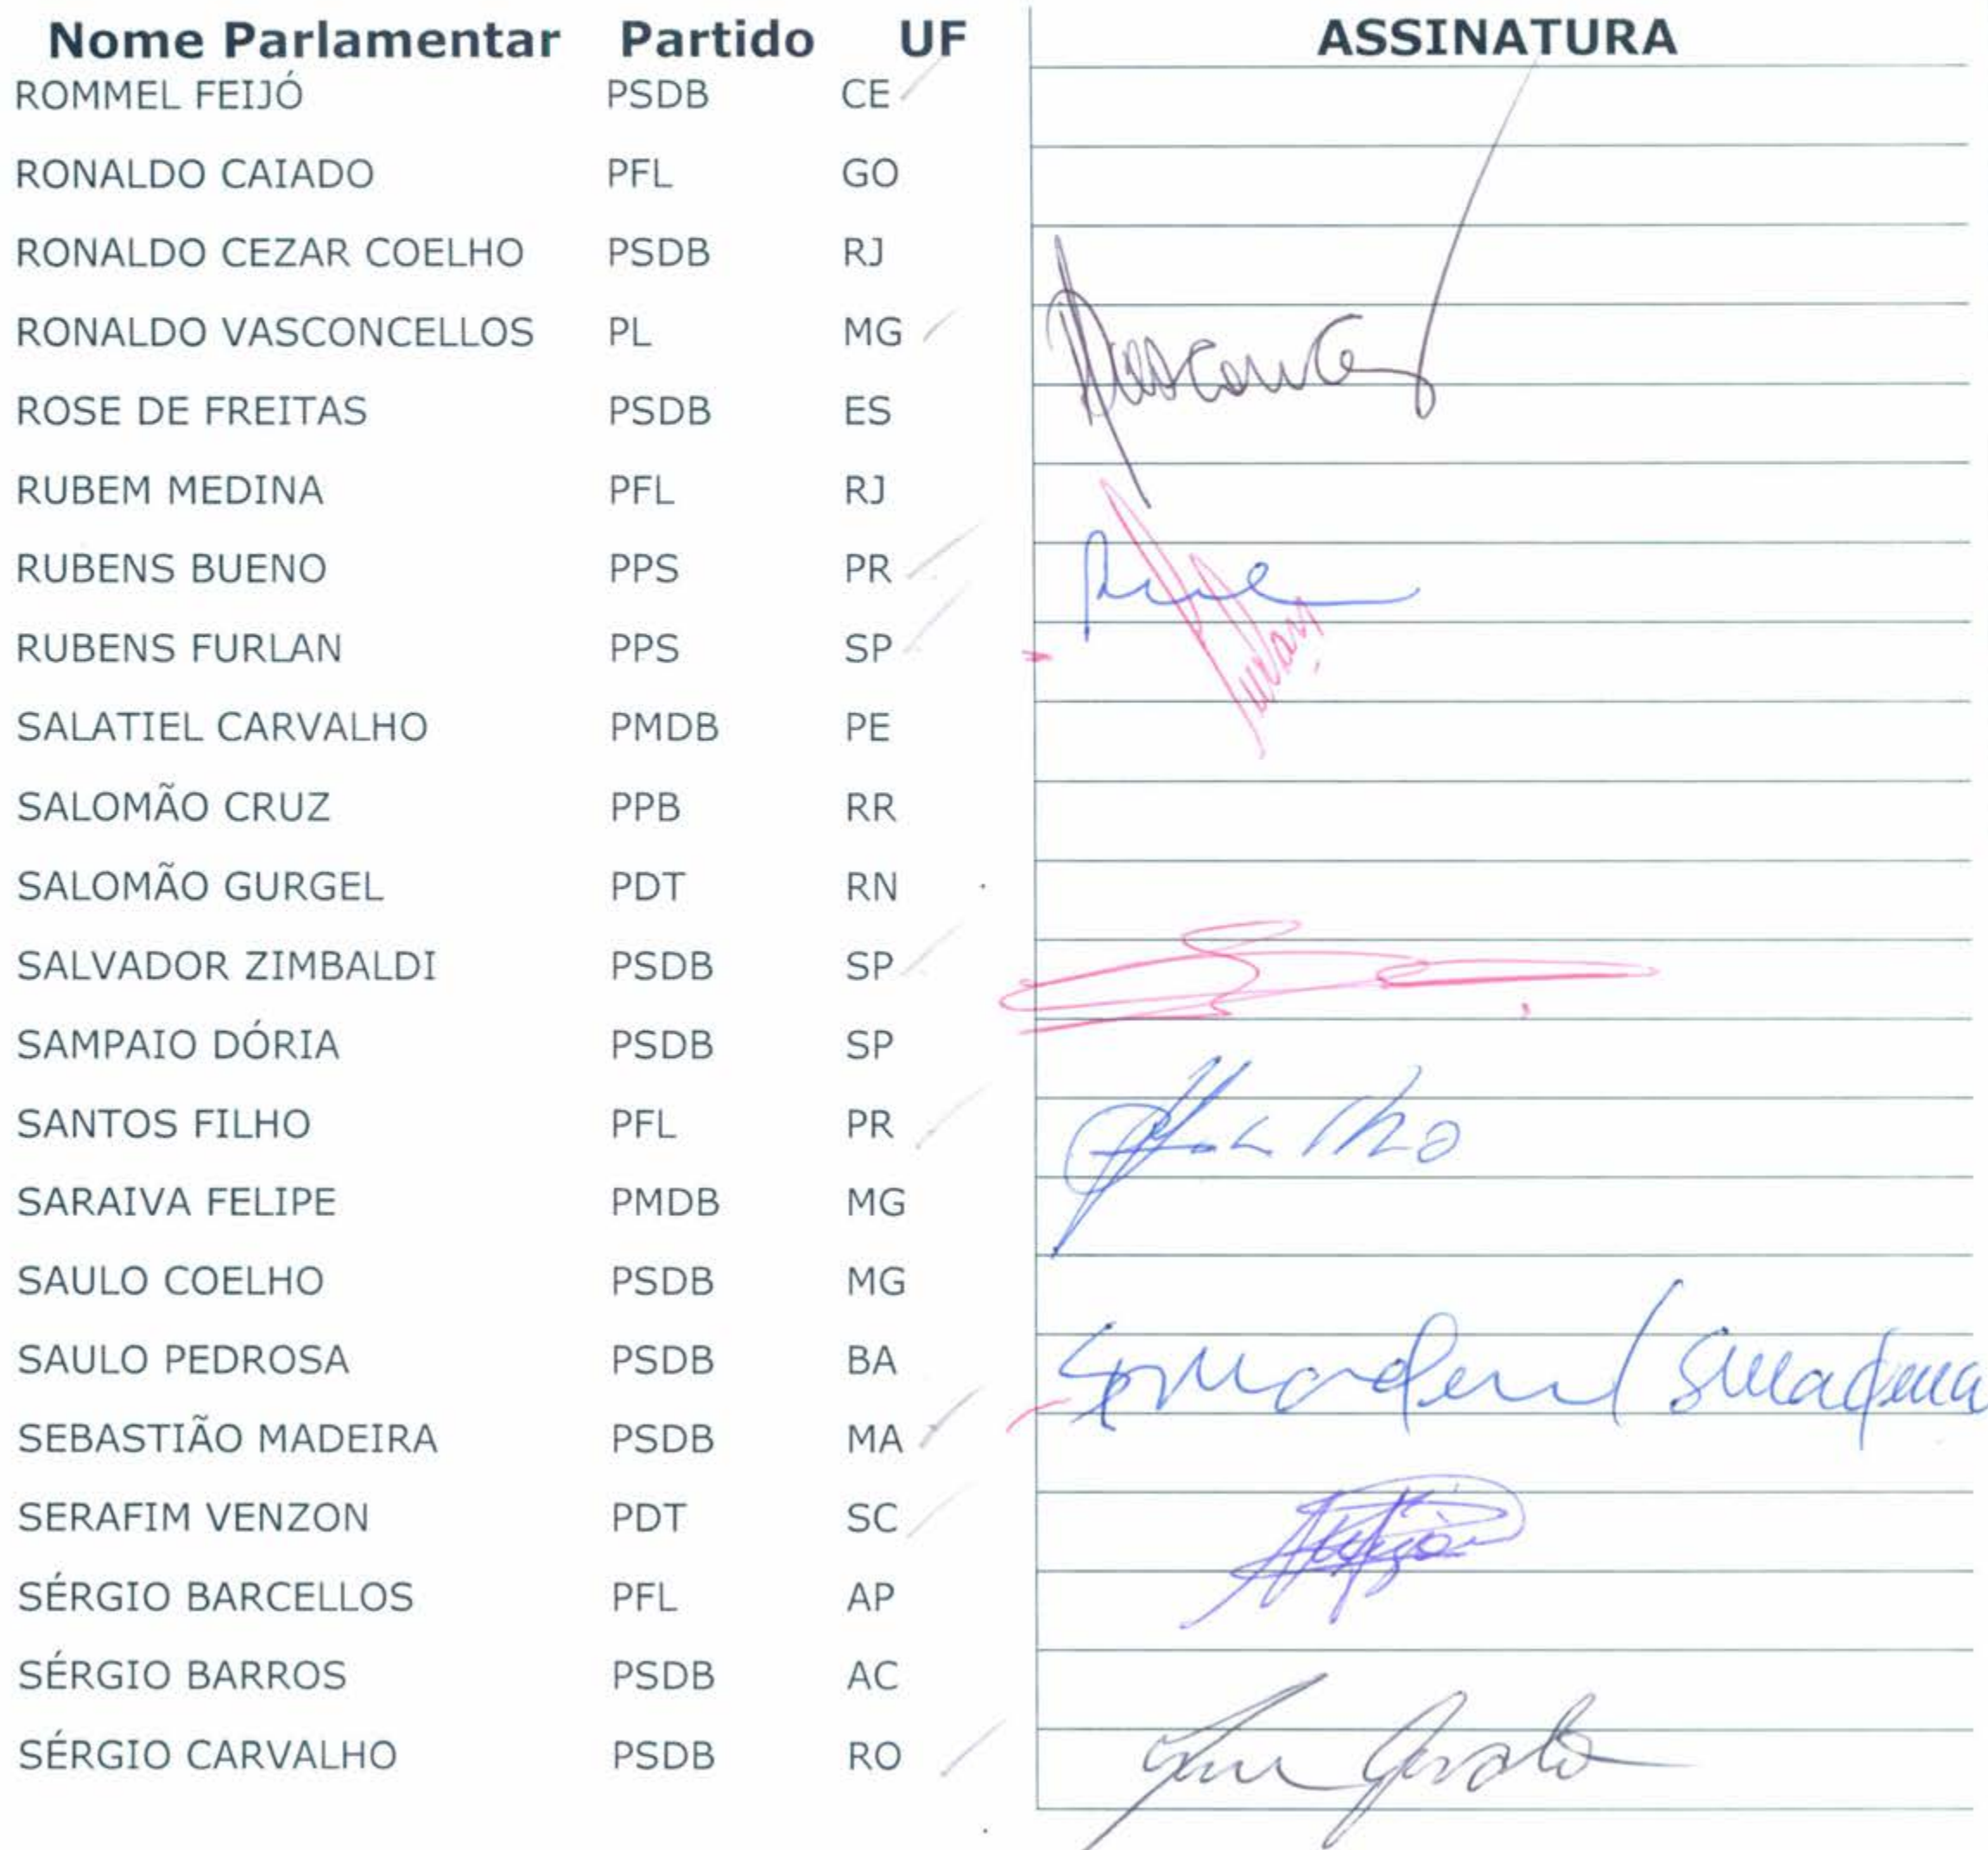 Nome Parlamentar Partido UF ASSINATURA
ROMMEL FEIJÓ PSDB CE
RONALDO CAIADO PFL GO
RONALDO CEZAR COELHO PSDB RJ
RONALDO VASCONCELLOS PL MG
ROSE DE FREITAS PSDB ES
RUBEM MEDINA PFL RJ
RUBENS BUENO PPS PR
RUBENS FURLAN PPS SP
SALATIEL CARVALHO PMDB PE
SALOMÃO CRUZ PPB RR
SALOMÃO GURGEL PDT RN
SALVADOR ZIMBALDI PSDB SP
SAMPAIO DÓRIA PSDB SP
SANTOS FILHO PFL PR
SARAIVA FELIPE PMDB MG
SAULO COELHO PSDB MG
SAULO PEDROSA PSDB BA
SEBASTIÃO MADEIRA PSDB MA
SERAFIM VENZON PDT SC
SÉRGIO BARCELLOS PFL AP
SÉRGIO BARROS PSDB AC
SÉRGIO CARVALHO PSDB RO